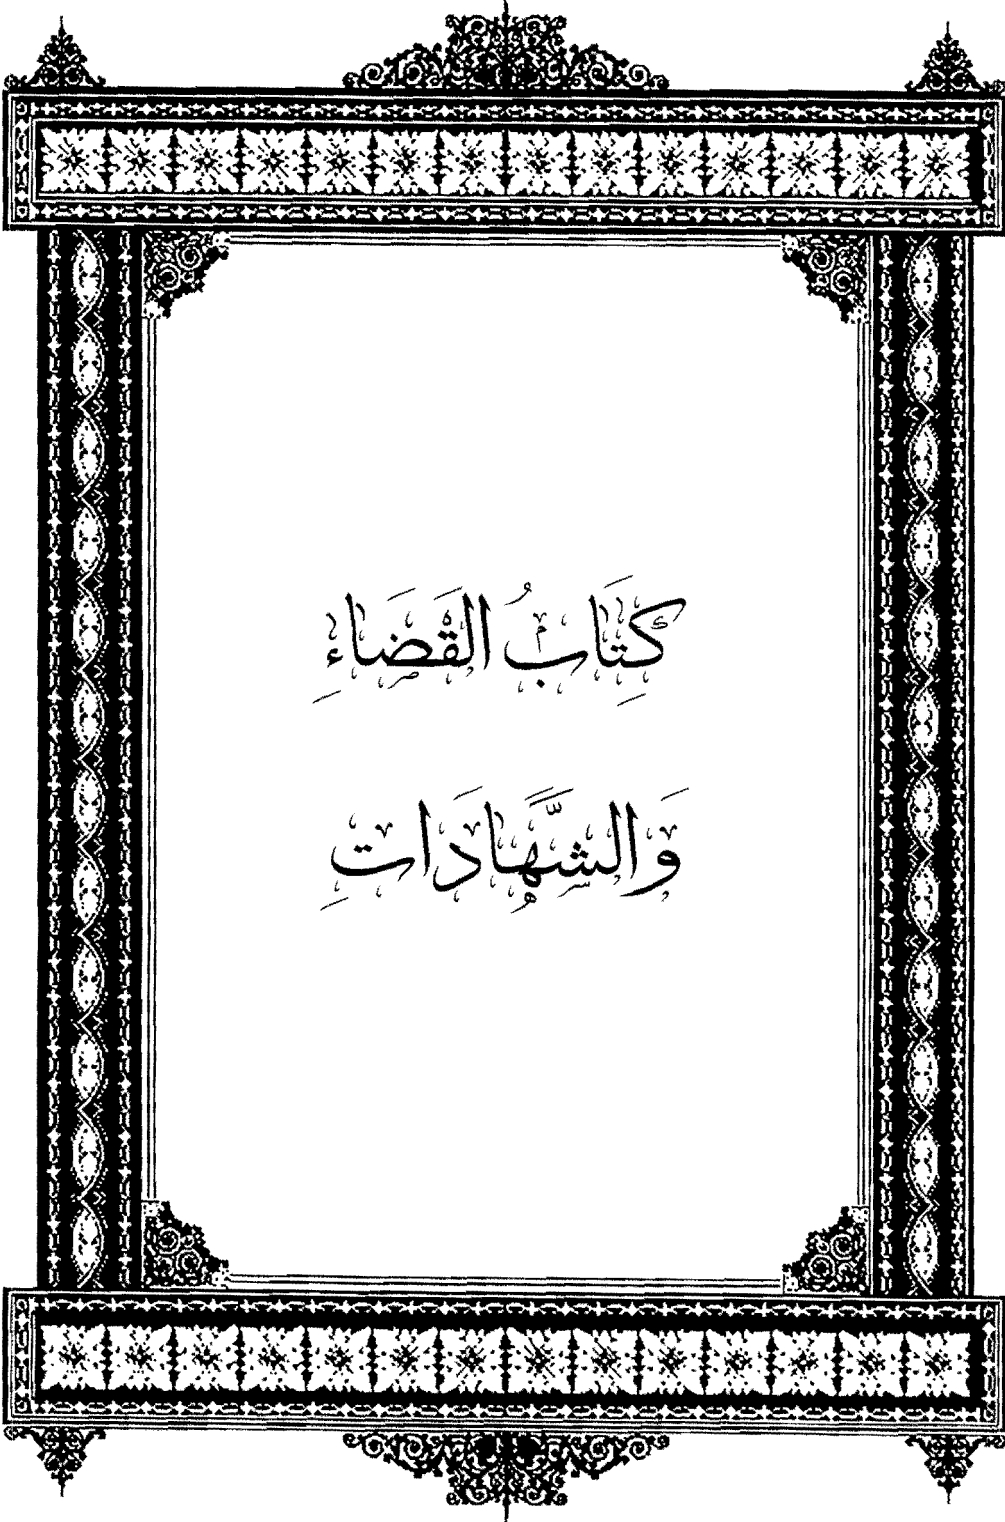 كِتَابُ القَضَاءِ
وَالشَّهَادَاتِ